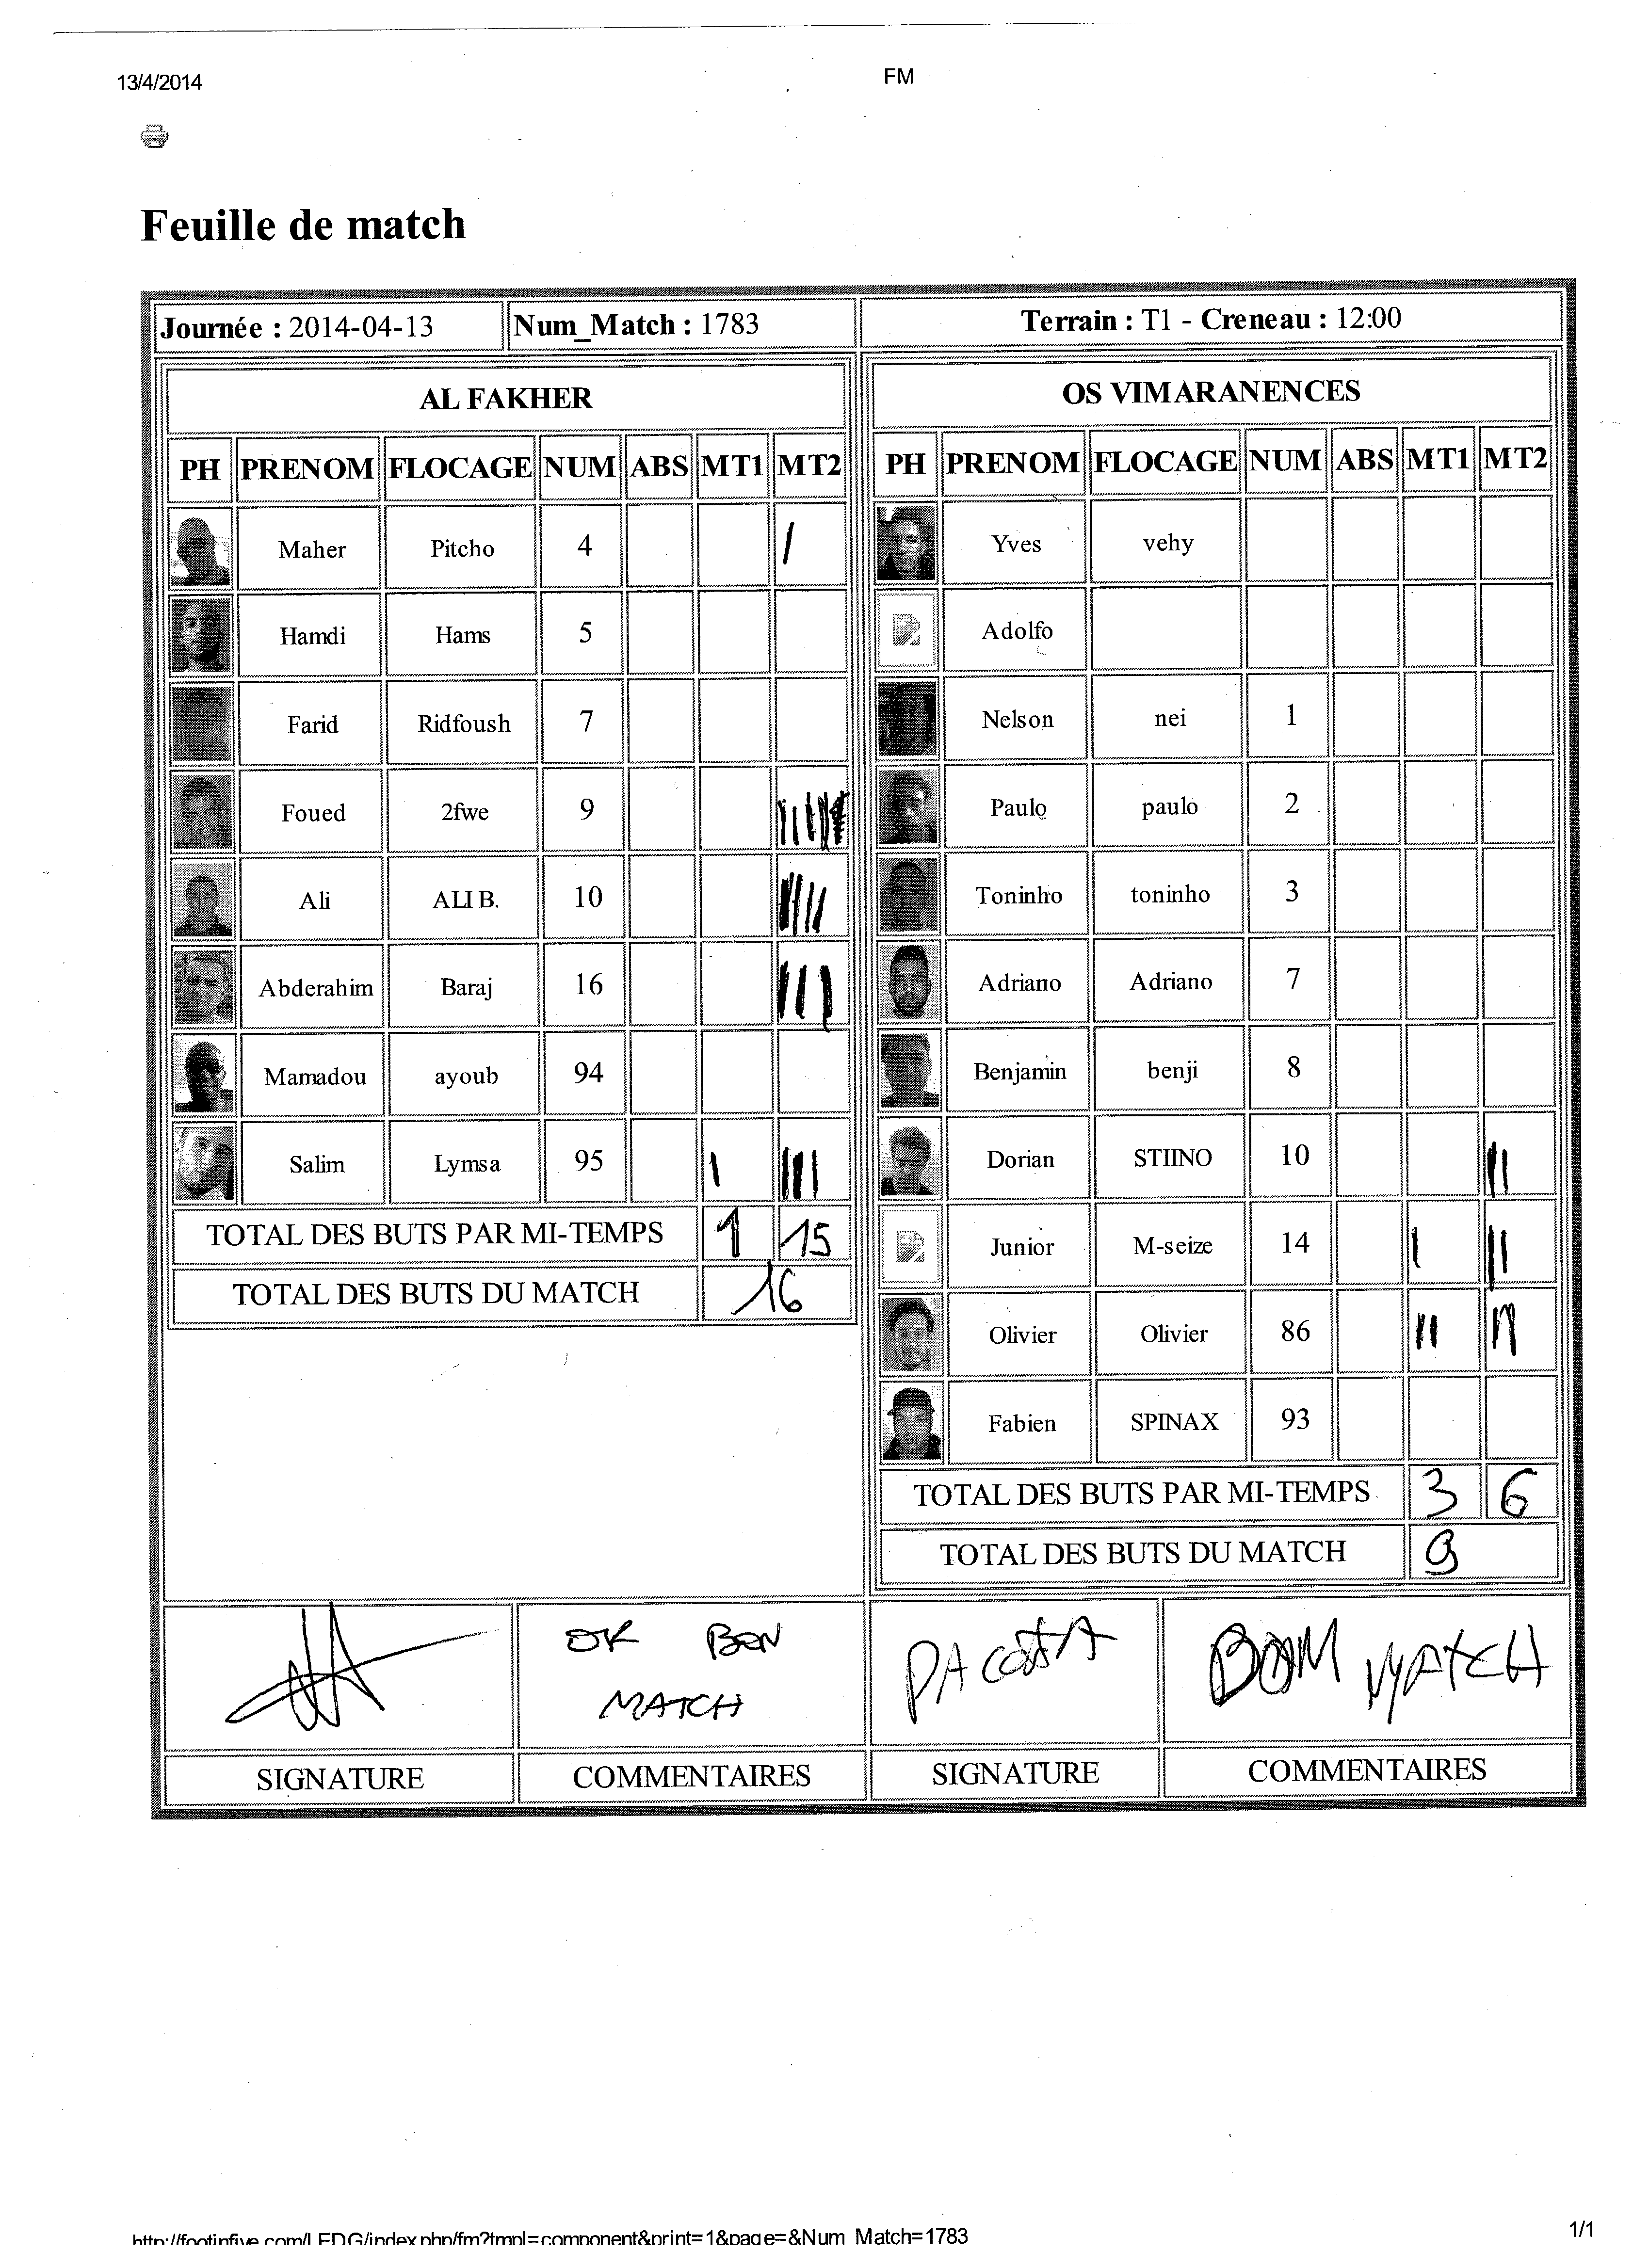 13/4/2014 FM
Feuille de match
Journée : 2014-04-13 Num_Match : 1783 Terrain : T1 - Creneau : 12:00
AL FAKHER
PH PRENOM FLOCAGE NUM ABS MT1 MT2
Maher Pitcho 4
Hamdi Hams 5
Farid Ridfoush 7
Foued 2fwe 9
Ali ALI B. 10
Abderahim Baraj 16
Mamadou ayoub 94
Salim Lymsa 95
TOTAL DES BUTS PAR MI-TEMPS 1 15
TOTAL DES BUTS DU MATCH 16
OS VIMARANENCES
PH PRENOM FLOCAGE NUM ABS MT1 MT2
Yves vehy
Adolfo
Nelson nei 1
Paulo paulo 2
Toninho toninho 3
Adriano Adriano 7
Benjamin benji 8
Dorian STIINO 10
Junior M-seize 14
Olivier Olivier 86
Fabien SPINAX 93
TOTAL DES BUTS PAR MI-TEMPS 3 6
TOTAL DES BUTS DU MATCH 9
OK BON
MATCH
PA COSTA
BOM MATCH
SIGNATURE COMMENTAIRES SIGNATURE COMMENTAIRES
http://footinfive.com/LEDG/index.php/fm?tmpl=component&print=1&page=&Num_Match=1783 1/1